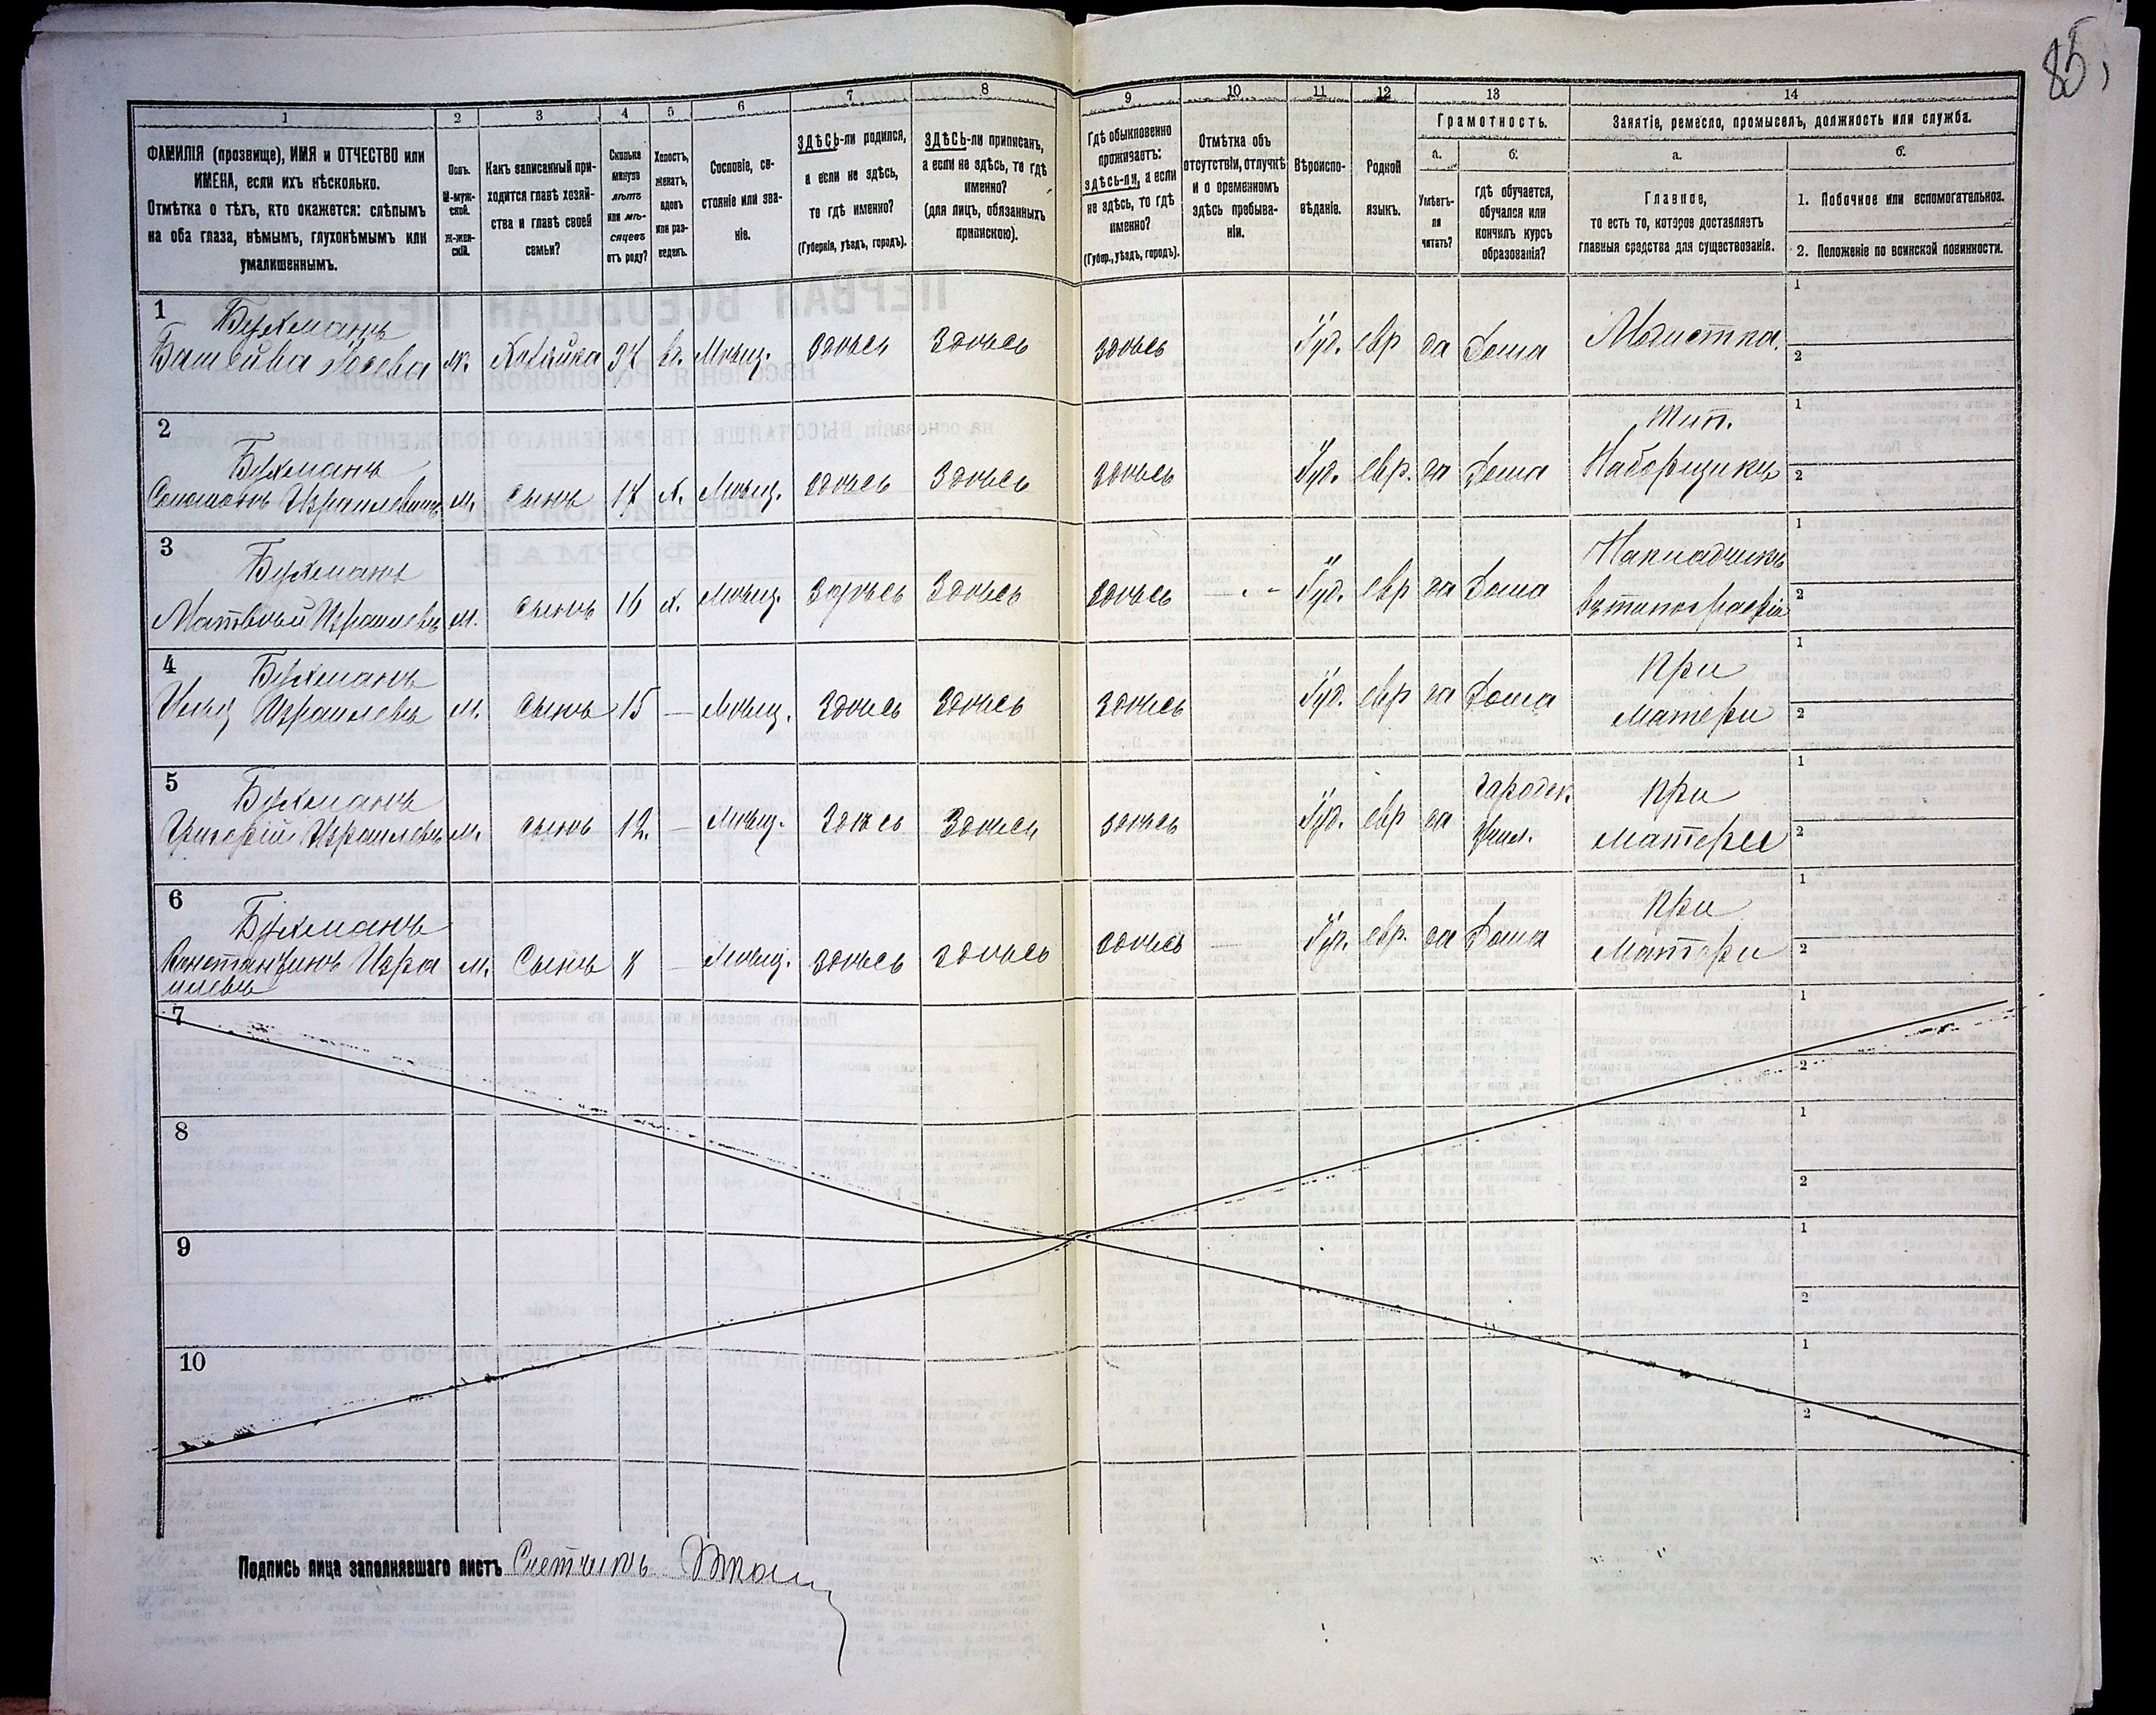 85,
1 2 3 4 5 6 7 8 9 10 11 12 13 14
ФАМИЛІЯ (прозвище), ИМЯ и ОТЧЕСТВО или
ИМЕНА, если ихъ нѣсколько.
Отмѣтка о тѣхъ, кто окажется: слѣпымъ
на оба глаза, нѣмымъ, глухонѣмымъ или
умалишеннымъ.
Полъ.
М-муж-
ской.
Ж-жен-
скій.
Какъ записанный при-
ходится главѣ хозяй-
ства и главѣ своей
семьи?
Сколько
минуло
лѣтъ
или мѣ-
сяцевъ
отъ роду?
Холостъ,
женатъ,
вдовъ
или раз-
веденъ.
Сословіе, со-
стояніе или зва-
ніе.
ЗДѢСЬ-ли родился,
а если не здѣсь,
то гдѣ именно?
(Губернія, уѣздъ, городъ).
ЗДѢСЬ-ли приписанъ,
а если не здѣсь, то гдѣ
именно?
(для лицъ, обязанныхъ
припискою).
Гдѣ обыкновенно
проживаетъ:
здѣсь-ли, а если
не здѣсь, то гдѣ
именно?
(Губер., уѣздъ, городъ).
Отмѣтка объ
отсутствіи, отлучкѣ
и о временномъ
здѣсь пребыва-
ніи.
Вѣроиспо-
вѣданіе.
Родной
языкъ.
Грамотность.
а.
Умѣетъ-
ли
читать?
б.
гдѣ обучается,
обучался или
кончилъ курсъ
образованія?
Занятіе, ремесло, промыселъ, должность или служба.
а.
Главное,
то есть то, которое доставляетъ
главныя средства для существованія.
б.
1. Побочное или вспомогательное.
2. Положеніе по воинской повинности.
1 Бухманъ
ж. Хозяйка 37 вд. Мѣщ. здѣсь здѣсь здѣсь Іуд. евр да дома
1
2
2 Бухманъ Тип.
Соломонъ Израилевичъ м. сынъ 17 х. Мѣщ. здѣсь здѣсь здѣсь Іуд. евр. да дома Наборщикъ
1
2
3 Бухманъ Накладчикъ
Матвѣй Израилевъ м. сынъ 16 х. Мѣщ. здѣсь здѣсь здѣсь Іуд. евр да дома въ типографіи
1
2
4 Бухманъ при
Илья Израилевъ м. сынъ 15 — Мѣщ. здѣсь здѣсь здѣсь Іуд. евр да дома матери
1
2
5 Бухманъ городск. при
Григорій Израилевъ м. сынъ 12. — Мѣщ. здѣсь здѣсь здѣсь Іуд. евр да учил. матери
1
2
6 Бухманъ при
Константинъ Изра м. Сынъ 8 — Мѣщ. здѣсь здѣсь здѣсь — Іуд. евр. да дома матери
илевъ
1
2
7
1
2
8
1
2
9
1
2
10
1
2
Подпись лица заполнявшаго листъ Счетчикъ